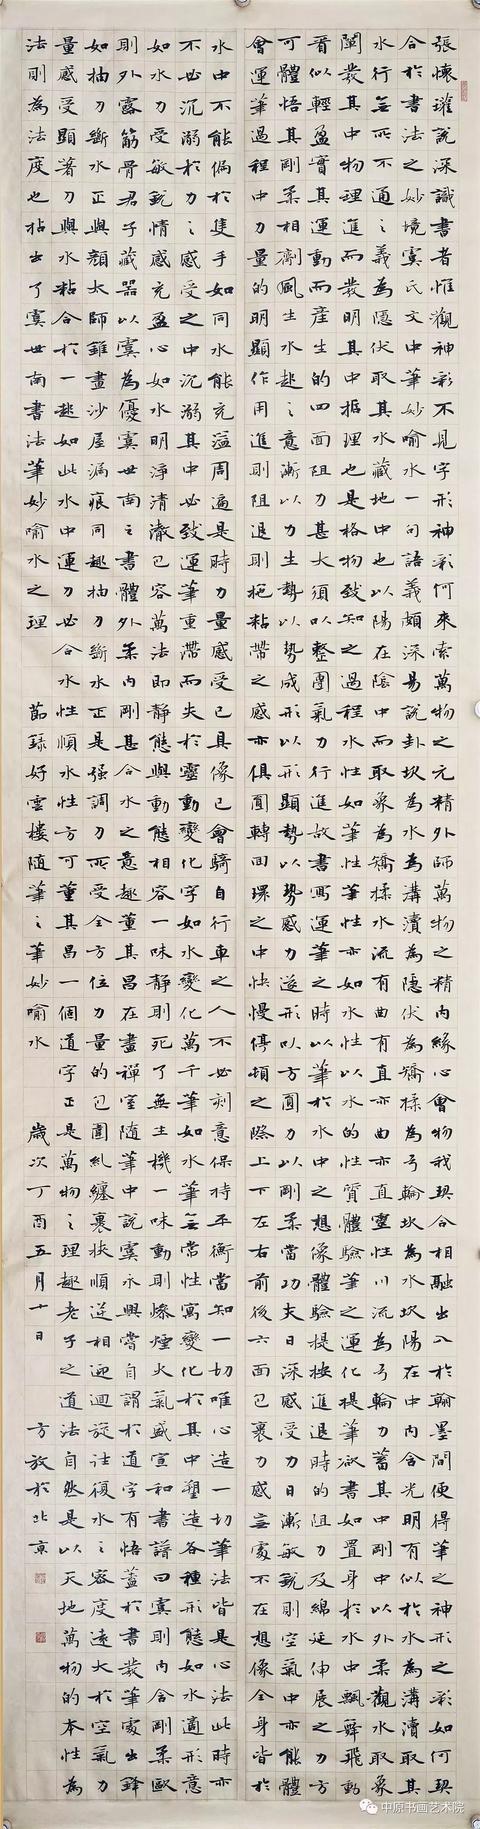 張懷瓘說深識書者惟觀神彩不見字形神彩何來索萬物之元精外師萬物之精內緣心會物我契合相融出入於翰墨間便得筆之神形之彩如何契
合於書法之妙境虞氏文中筆妙喻水一句語義頗深易說卦坎為水為溝瀆為隱伏為矯揉為弓輪坎為水坎陽在中內含光明有似於水為溝瀆取其
水行無所不通之義為隱伏取其水藏地中也以陽在陰中而取象為矯揉水流有曲有直亦曲亦直靈性川流為弓輪力蓄其中剛中以外柔觀水取象
闡發其中物理進而發明其中據理也是格物致知之過程水性如筆性筆性亦如水性以水的性質體驗筆之運化提筆欲書如置身於水中飄舞飛動
看似輕盈實其運動而產生的四面阻力甚大須以整團氣力行進故書寫運筆之時以筆於水中之想像體驗提按進退時的阻力及綿延伸展之力方
可體悟其剛柔相劑風生水起之意漸以力生勢以勢成形以形顯勢以勢感力遂形以方圓力以剛柔當功夫日深感受力日漸敏銳則空氣中亦能體
會運筆過程中力量的明顯作用進則阻退則拖粘帶之感亦俱圓轉回環之中快慢停頓之際上下左右前後六面包裹力感無處不在想像全身皆於
水中不能偏於隻手如同水能充溢周遍是時力量感受已具像已會騎自行車之人不必刻意保持平衡當知一切唯心造一切筆法皆是心法此時亦
不必沉溺於力之感受之中沉溺其中必致運筆重滯而失於靈動變化字如水變化萬千筆如水筆無常性寓變化於其中塑造各種形態如水適形意
如水力受敏銳情感充盈心如水明淨清澈包容萬法即靜態與動態相容一味靜則死了無生機一味動則燥煙火氣盛宣和書譜曰虞則內含剛柔歐
則外露筋骨君子藏器以虞為優虞世南之書體外柔內剛甚合水之意趣董其昌在畫禪室隨筆中說虞永興嘗自謂於道字有悟蓋於書發筆處出鋒
如抽刀斷水正與顏太師錐畫沙屋漏痕同趣抽刀斷水正是強調力所受全方位力量的包圍糾纏裹挾順逆相迎迴旋往復水之容度遠大於空氣力
量感受顯著刀與水粘合於一趣如此水中運力必合水性順水性方可董其昌一個道字正是萬物之理趣老子之道法自然是以天地萬物的本性為
法則為法度也拈出了虞世南書法筆妙喻水之理 節錄好雲樓隨筆之筆妙喻水 歲次丁酉五月十日 方放於北京
中原书画艺术院